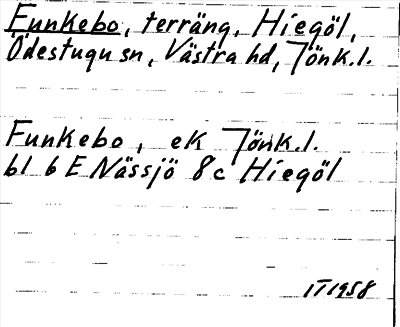 Funkebo, terräng, Hiegöl,
Ödestugu sn, Västra hd, Jönk.l.
Funkebo, ek Jönk.l.
bl 6 E Nässjö 8c Hiegöl
IT 1958